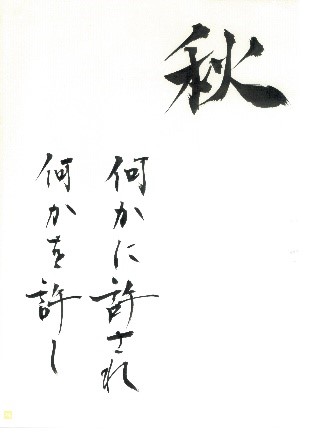 秋
何かに許され
何かを許し